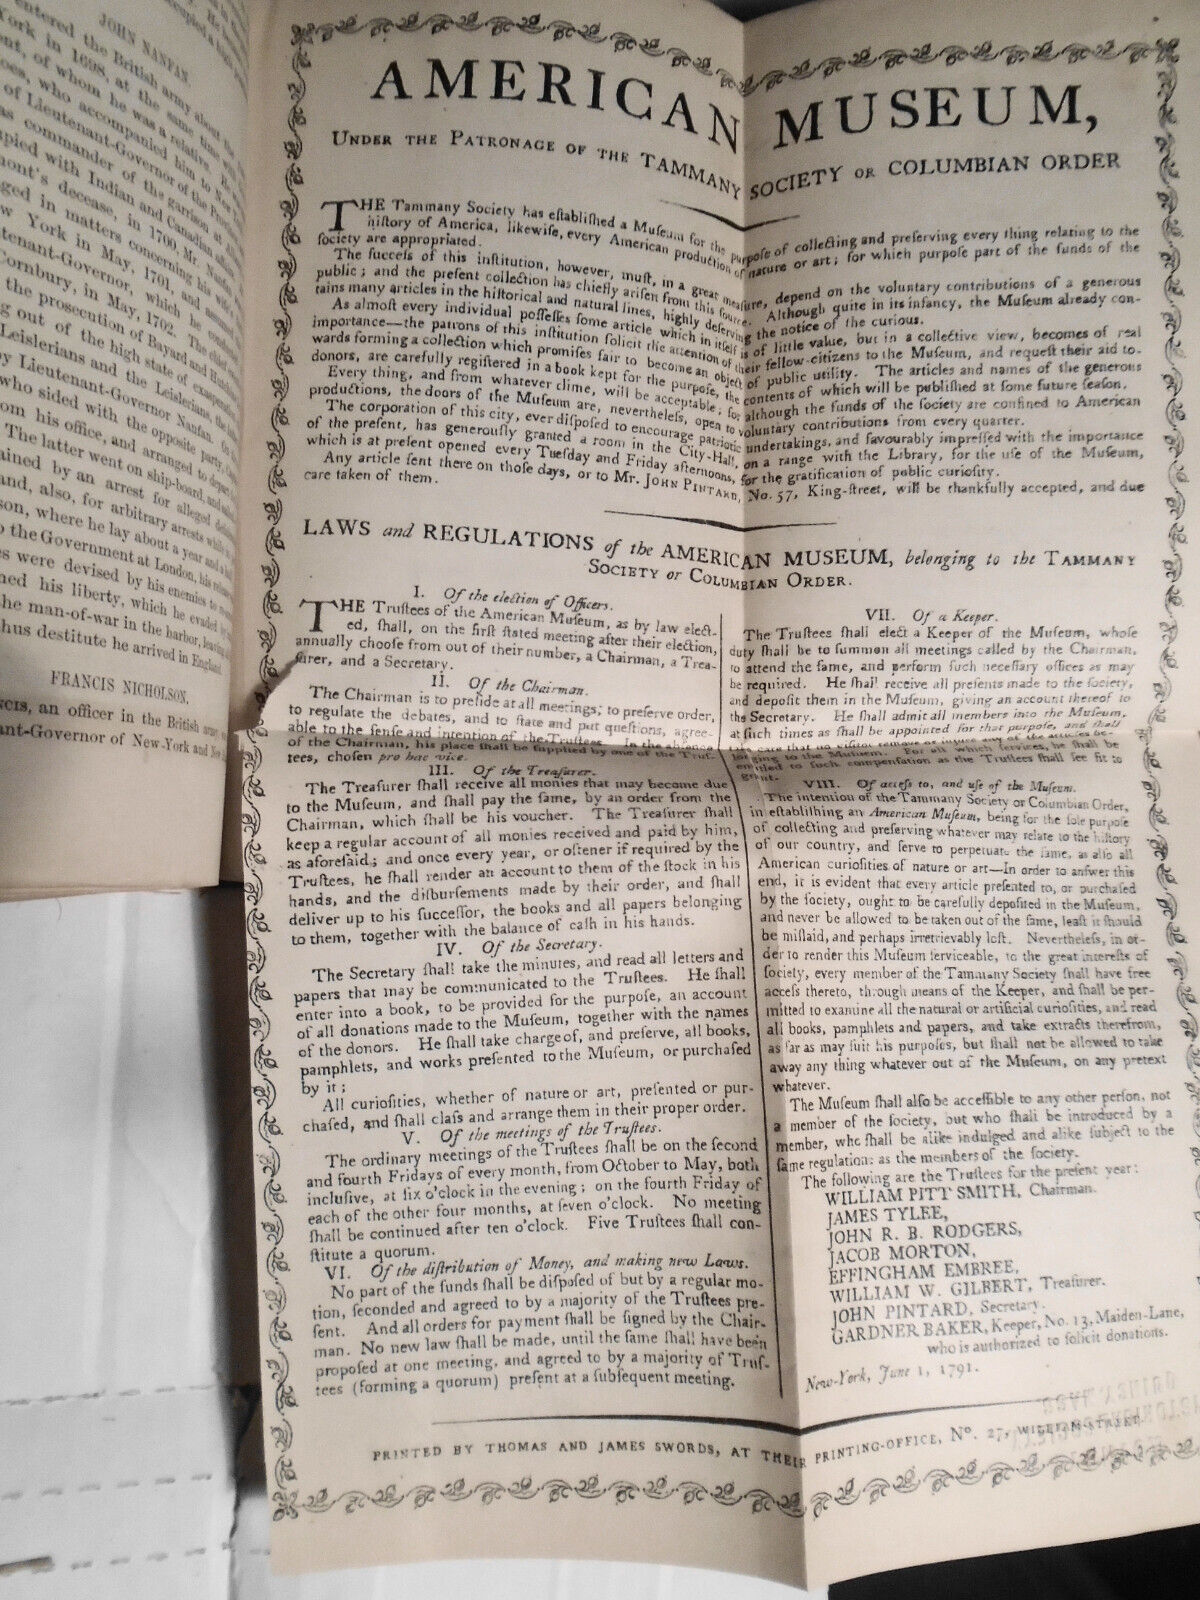 JOHN NANFAN.
entered the British army about the
York in 1698, at the same time
ent, of whom he was a relative.
oes, who accompanied him to New
of Lieutenant-Governor of the Province
as commander of the garrison at
pied with Indian and Canadian
mont's decease, in 1700, Mr. Nanfan
ged in matters concerning his wife
w York in May, 1701, and assumed
tenant-Governor, which he
Cornbury, in May, 1702. The
the prosecution of Bayard and
g out of the high state of
Leislerians and the
by Lieutenant-Governor Nanfan.
who sided with the opposite party.
om his office, and arranged to depart
The latter went on ship-board, and
ained by an arrest for alleged
and, also, for arbitrary arrests while
son, where he lay about a year and a
o the Government at London, his
es were devised by his enemies to
ned his liberty, which he evaded by
he man-of-war in the harbor,
thus destitute he arrived in England
FRANCIS NICHOLSON.
NCIS, an officer in the British army
ant-Governor of New-York and New
AMERICAN MUSEUM,
UNDER THE PATRONAGE OF THE TAMMANY SOCIETY OR COLUMBIAN ORDER
THE Tammany Society has eſtabliſhed a Muſeum for the purpoſe of collecting and preſerving every thing relating to the
hiſtory of America, likewiſe, every American production of nature or art; for which purpoſe part of the funds of the
ſociety are appropriated.
The ſucceſs of this inſtitution, however, muſt, in a great meaſure, depend on the voluntary contributions of a generous
public; and the preſent collection has chiefly ariſen from this ſource. Although quite in its infancy, the Muſeum already con-
tains many articles in the hiſtorical and natural lines, highly deſerving the notice of the curious.
As almoſt every individual poſſeſſes ſome article which in itſelf is of little value, but in a collective view, becomes of real
importance—the patrons of this inſtitution ſolicit the attention of their fellow-citizens to the Muſeum, and requeſt their aid to-
wards forming a collection which promiſes fair to become an object of public utility. The articles and names of the generous
donors, are carefully regiſtered in a book kept for the purpoſe, the contents of which will be publiſhed at ſome future ſeaſon.
Every thing, and from whatever clime, will be acceptable; for although the funds of the ſociety are confined to American
productions, the doors of the Muſeum are, nevertheleſs, open to voluntary contributions from every quarter.
The corporation of this city, ever diſpoſed to encourage patriotic undertakings, and favourably impreſſed with the importance
of the preſent, has generouſly granted a room in the City-Hall, on a range with the Library, for the uſe of the Muſeum,
which is at preſent opened every Tueſday and Friday afternoons, for the gratification of public curioſity.
Any article ſent there on thoſe days, or to Mr. JOHN PINTARD, No. 57, King-ſtreet, will be thankfully accepted, and due
care taken of them.
LAWS and REGULATIONS of the AMERICAN MUSEUM, belonging to the TAMMANY
SOCIETY or COLUMBIAN ORDER.
I. Of the election of Officers.
THE Truſtees of the American Muſeum, as by law elect-
ed, ſhall, on the firſt ſtated meeting after their election,
annually chooſe from out of their number, a Chairman, a Trea-
ſurer, and a Secretary.
II. Of the Chairman.
The Chairman is to preſide at all meetings; to preſerve order,
to regulate the debates, and to ſtate and put queſtions, agree-
able to the ſenſe and intention of the Truſtees. In the abſence
of the Chairman, his place ſhall be ſupplied by one of the Truſ-
tees, choſen pro hac vice.
III. Of the Treaſurer.
The Treaſurer ſhall receive all monies that may become due
to the Muſeum, and ſhall pay the ſame, by an order from the
Chairman, which ſhall be his voucher. The Treaſurer ſhall
keep a regular account of all monies received and paid by him,
as aforeſaid; and once every year, or oftener if required by the
Truſtees, he ſhall render an account to them of the ſtock in his
hands, and the diſburſements made by their order, and ſhall
deliver up to his ſucceſſor, the books and all papers belonging
to them, together with the balance of caſh in his hands.
IV. Of the Secretary.
The Secretary ſhall take the minutes, and read all letters and
papers that may be communicated to the Truſtees. He ſhall
enter into a book, to be provided for the purpoſe, an account
of all donations made to the Muſeum, together with the names
of the donors. He ſhall take charge of, and preſerve, all books,
pamphlets, and works preſented to the Muſeum, or purchaſed
by it;
All curioſities, whether of nature or art, preſented or pur-
chaſed, and ſhall claſs and arrange them in their proper order.
V. Of the meetings of the Truſtees.
The ordinary meetings of the Truſtees ſhall be on the ſecond
and fourth Fridays of every month, from October to May, both
incluſive, at ſix o'clock in the evening; on the fourth Friday of
each of the other four months, at ſeven o'clock. No meeting
ſhall be continued after ten o'clock. Five Truſtees ſhall con-
ſtitute a quorum.
VI. Of the diſtribution of Money, and making new Laws.
No part of the funds ſhall be diſpoſed of but by a regular mo-
tion, ſeconded and agreed to by a majority of the Truſtees pre-
ſent. And all orders for payment ſhall be ſigned by the Chair-
man. No new law ſhall be made, until the ſame ſhall have been
propoſed at one meeting, and agreed to by a majority of Truſ-
tees (forming a quorum) preſent at a ſubſequent meeting.
VII. Of a Keeper.
The Truſtees ſhall elect a Keeper of the Muſeum, whoſe
duty ſhall be to ſummon all meetings called by the Chairman,
to attend the ſame, and perform ſuch neceſſary offices as may
be required. He ſhall receive all preſents made to the ſociety,
and depoſit them in the Muſeum, giving an account thereof to
the Secretary. He ſhall admit all members into the Muſeum,
at ſuch times as ſhall be appointed for that purpoſe, and ſhall
take care that no viſitor remove or injure any of the articles be-
longing to the Muſeum. For all which ſervices, he ſhall be
entitled to ſuch compenſation as the Truſtees ſhall ſee fit to
grant.
VIII. Of acceſs to, and uſe of the Muſeum.
The intention of the Tammany Society or Columbian Order,
in eſtabliſhing an American Muſeum, being for the ſole purpoſe
of collecting and preſerving whatever may relate to the hiſtory
of our country, and ſerve to perpetuate the ſame, as alſo all
American curioſities of nature or art—In order to anſwer this
end, it is evident that every article preſented to, or purchaſed
by the ſociety, ought to be carefully depoſited in the Muſeum,
and never be allowed to be taken out of the ſame, leaſt it ſhould
be miſlaid, and perhaps irretrievably loſt. Nevertheleſs, in or-
der to render this Muſeum ſerviceable, to the great intereſts of
ſociety, every member of the Tammany Society ſhall have free
acceſs thereto, through means of the Keeper, and ſhall be per-
mitted to examine all the natural or artificial curioſities, and read
all books, pamphlets and papers, and take extracts therefrom,
as far as may ſuit his purpoſes, but ſhall not be allowed to take
away any thing whatever out of the Muſeum, on any pretext
whatever.
The Muſeum ſhall alſo be acceſſible to any other perſon, not
a member of the ſociety, but who ſhall be introduced by a
member, who ſhall be alike indulged and alike ſubject to the
ſame regulations as the members of the ſociety.
The following are the Truſtees for the preſent year:
WILLIAM PITT SMITH, Chairman.
JAMES TYLEE,
JOHN R. B. RODGERS,
JACOB MORTON,
EFFINGHAM EMBREE,
WILLIAM W. GILBERT, Treaſurer.
JOHN PINTARD, Secretary.
GARDNER BAKER, Keeper, No. 13, Maiden-Lane,
who is authorized to ſolicit donations.
New-York, June 1, 1791.
PRINTED BY THOMAS AND JAMES SWORDS, AT THEIR PRINTING-OFFICE, No. 27, WILLIAM-STREET.